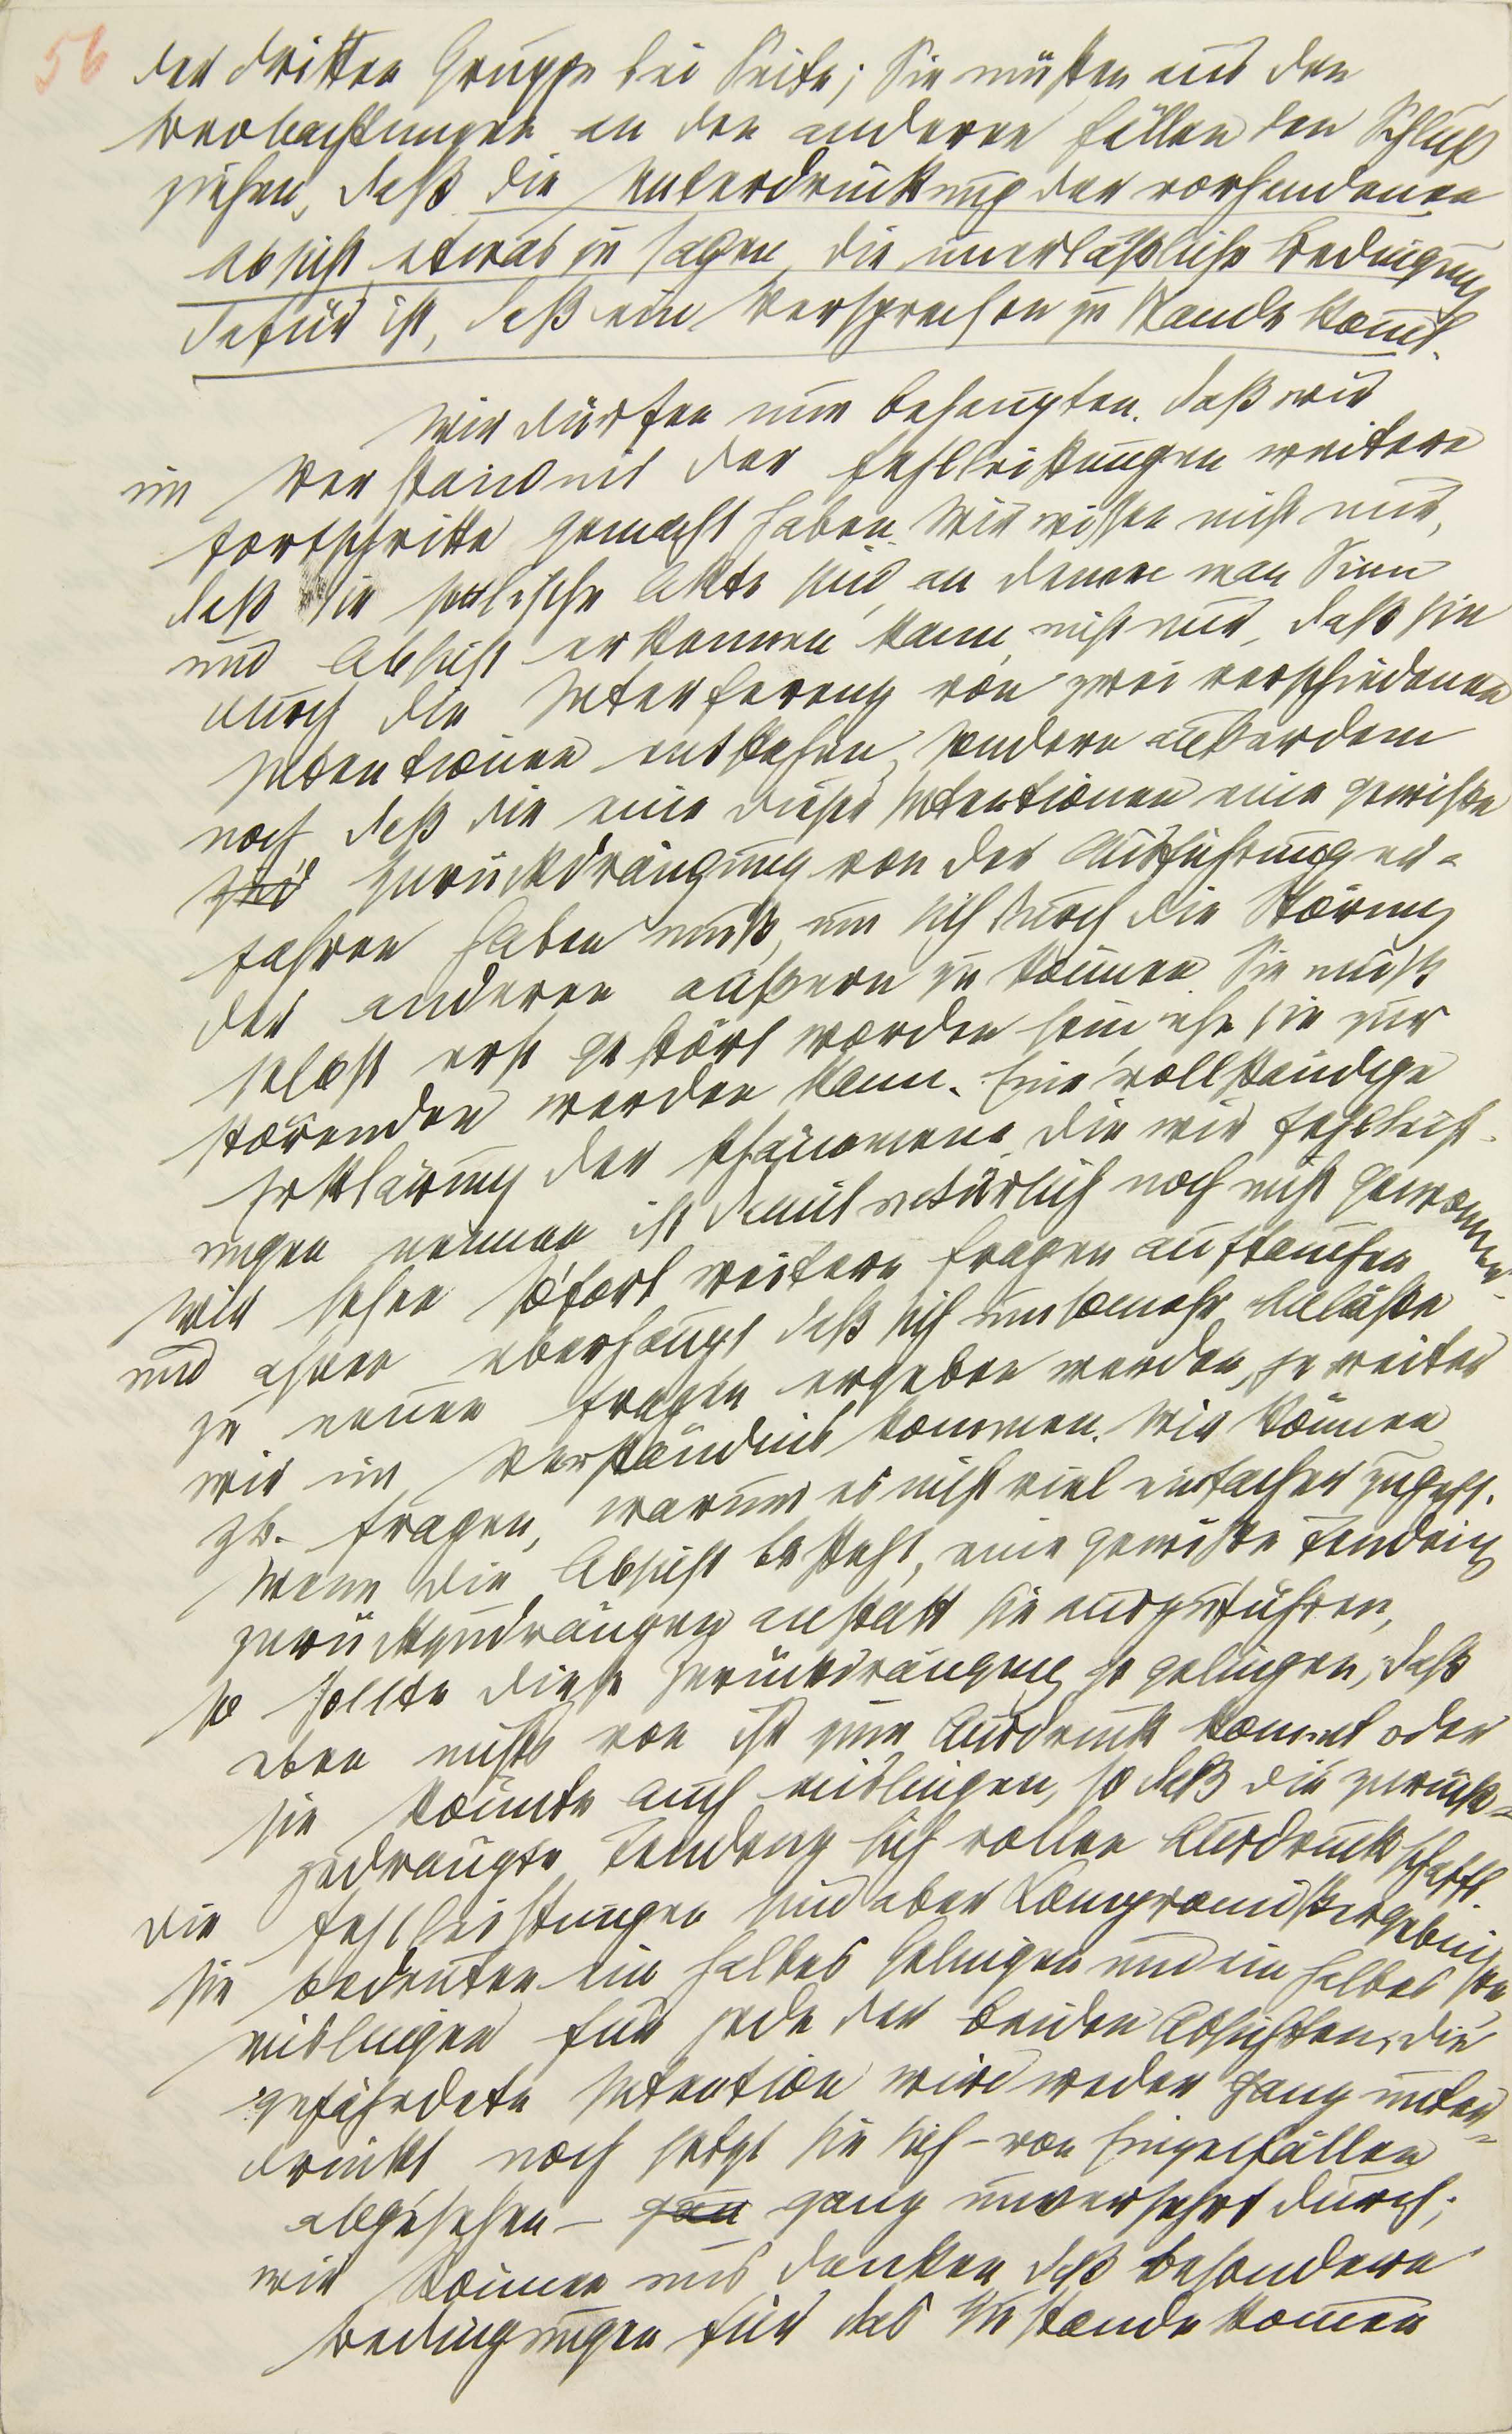 56
der dritten Gruppe bei Seite; Sie müßten aus den
Beobachtungen an den anderen Fällen den Schluß
ziehen, daß die Unterdrückung der vorhandenen
Absicht etwas zu sagen, die unerläßliche Bedingung
dafür ist, daß ein Versprechen zu Stande kom̅t.
Wir dürfen nun behaupten, daß wir
im Verständnis der Fehlleistungen weitere
Fortschritte gemacht haben. Wir wissen nicht nur,
daß sie seelische Akte sind, an denen man Sinn
und Absicht erkennen kann, nicht nur, daß sie
durch die Interferenz von zwei verschiedenen
Intentionen entstehen, sondern außerdem
noch daß die eine dieser Intentionen eine gewisse
Zurückdrängung von der Ausführung er-
fahren haben muß, um sich durch die Störung
der anderen äußern zu können. Sie muß
selbst erst gestört worden sein, ehe sie zur
störenden werden kann. Eine vollständige
Erklärung der Phänomene, die wir Fehlleist-
ungen nennen ist damit natürlich noch nicht gewonnen.
Wir sehen sofort weitere Fragen auftauchen
und ahnen überhaupt daß sich umsomehr Anläße
zu neuen Fragen ergeben werden, je weiter
wir im Verständnis kommen. Wir können
zb. fragen, warum es nicht viel einfacher zugeht.
Wenn die Absicht besteht, eine gewisse Tendenz
zurückzudrängen anstatt sie auszuführen,
so sollte diese Zurückdrängung so gelingen, daß
eben nichts von ihr zum Ausdruck kommt oder
sie könnte auch mislingen, so daß die zurück-
gedrängte Tendenz sich vollen Ausdruck schafft.
Die Fehlleistungen sind aber Kompromißergebnisse
sie bedeuten ein halbes Gelingen und ein halbes
mislingen für jede der beiden Absichten, die
gefährdete Intention wird weder ganz unter-
drückt noch setzt sie sich – von Einzelfällen
abgesehen – gan ganz unversehrt durch;
wir können uns denken daß besondere
Bedingungen für das Zustandekom̅en